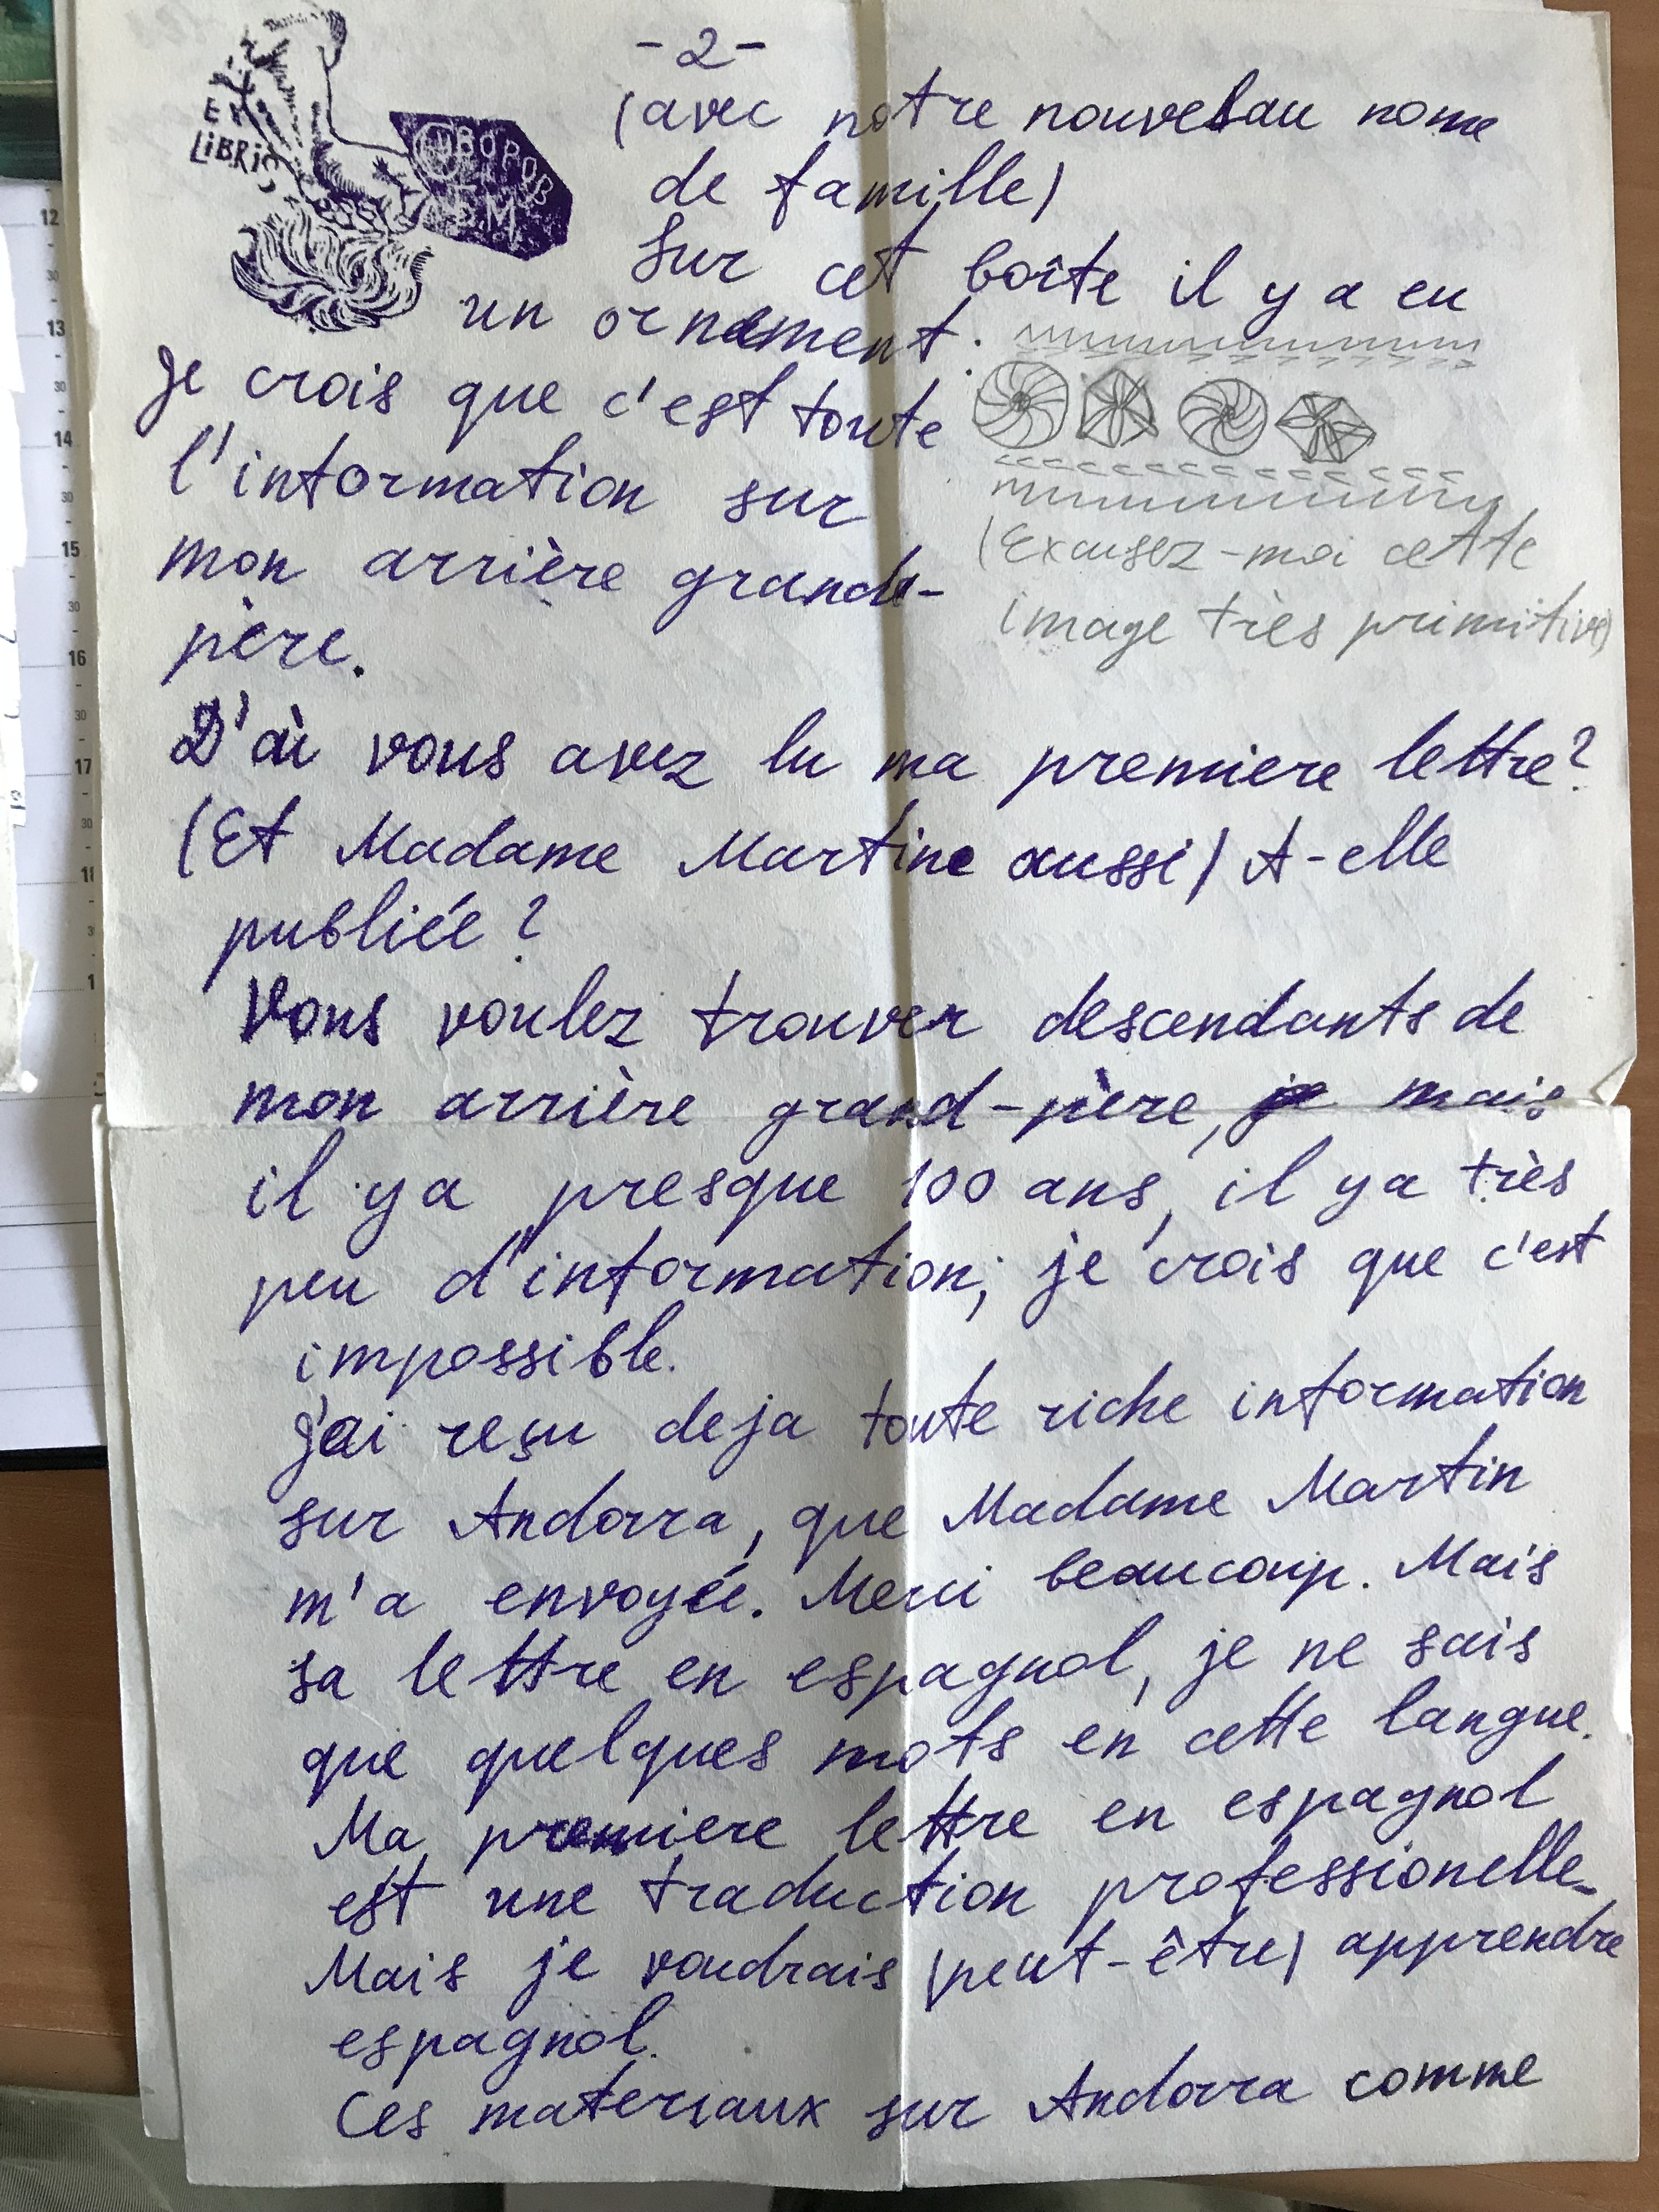 -2-
EX
LIBRIS
(avec notre nouvelau nome
de famille)
Sur cet boîte il y a eu
un ornament.
Je crois que c'est toute
l'information sur
mon arrière grande-
père.
(Excusez-moi cette
image très primitive)
D'où vous avez lu ma premiere lettre?
(Et Madame Martine aussi) A-elle
publiée?
Vous voulez trouver descendants de
mon arrière grand-père, je mais
il ya presque 100 ans, il ya très
peu d'information; je crois que c'est
impossible.
J'ai reçu deja toute riche information
sur Andorra, que Madame Martin
m'a envoyée. Merci beaucoup. Mais
sa lettre en espagnol, je ne sais
que quelques mots en cette langue.
Ma premiere lettre en espagnol
est une traduction professionelle.
Mais je voudrais (peut-être) apprendre
espagnol.
Ces materiaux sur Andorra comme